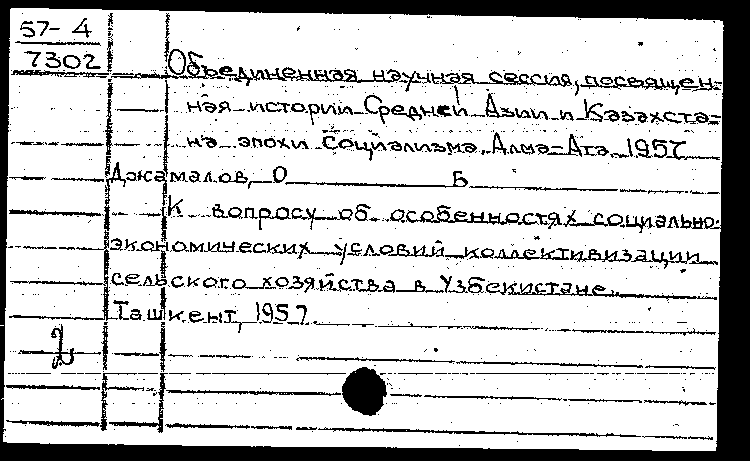 57-4
7302
Объединенная научная сессия, посвящен-
ная истории Средней Азии и Казахста-
на эпохи социализма. Алма-Ата, 1957
Джамалов, О Б
К вопросу об особенностях социально-
экономических условий коллективизации
сельского хозяйства в Узбекистане.
Ташкент, 1957.
2